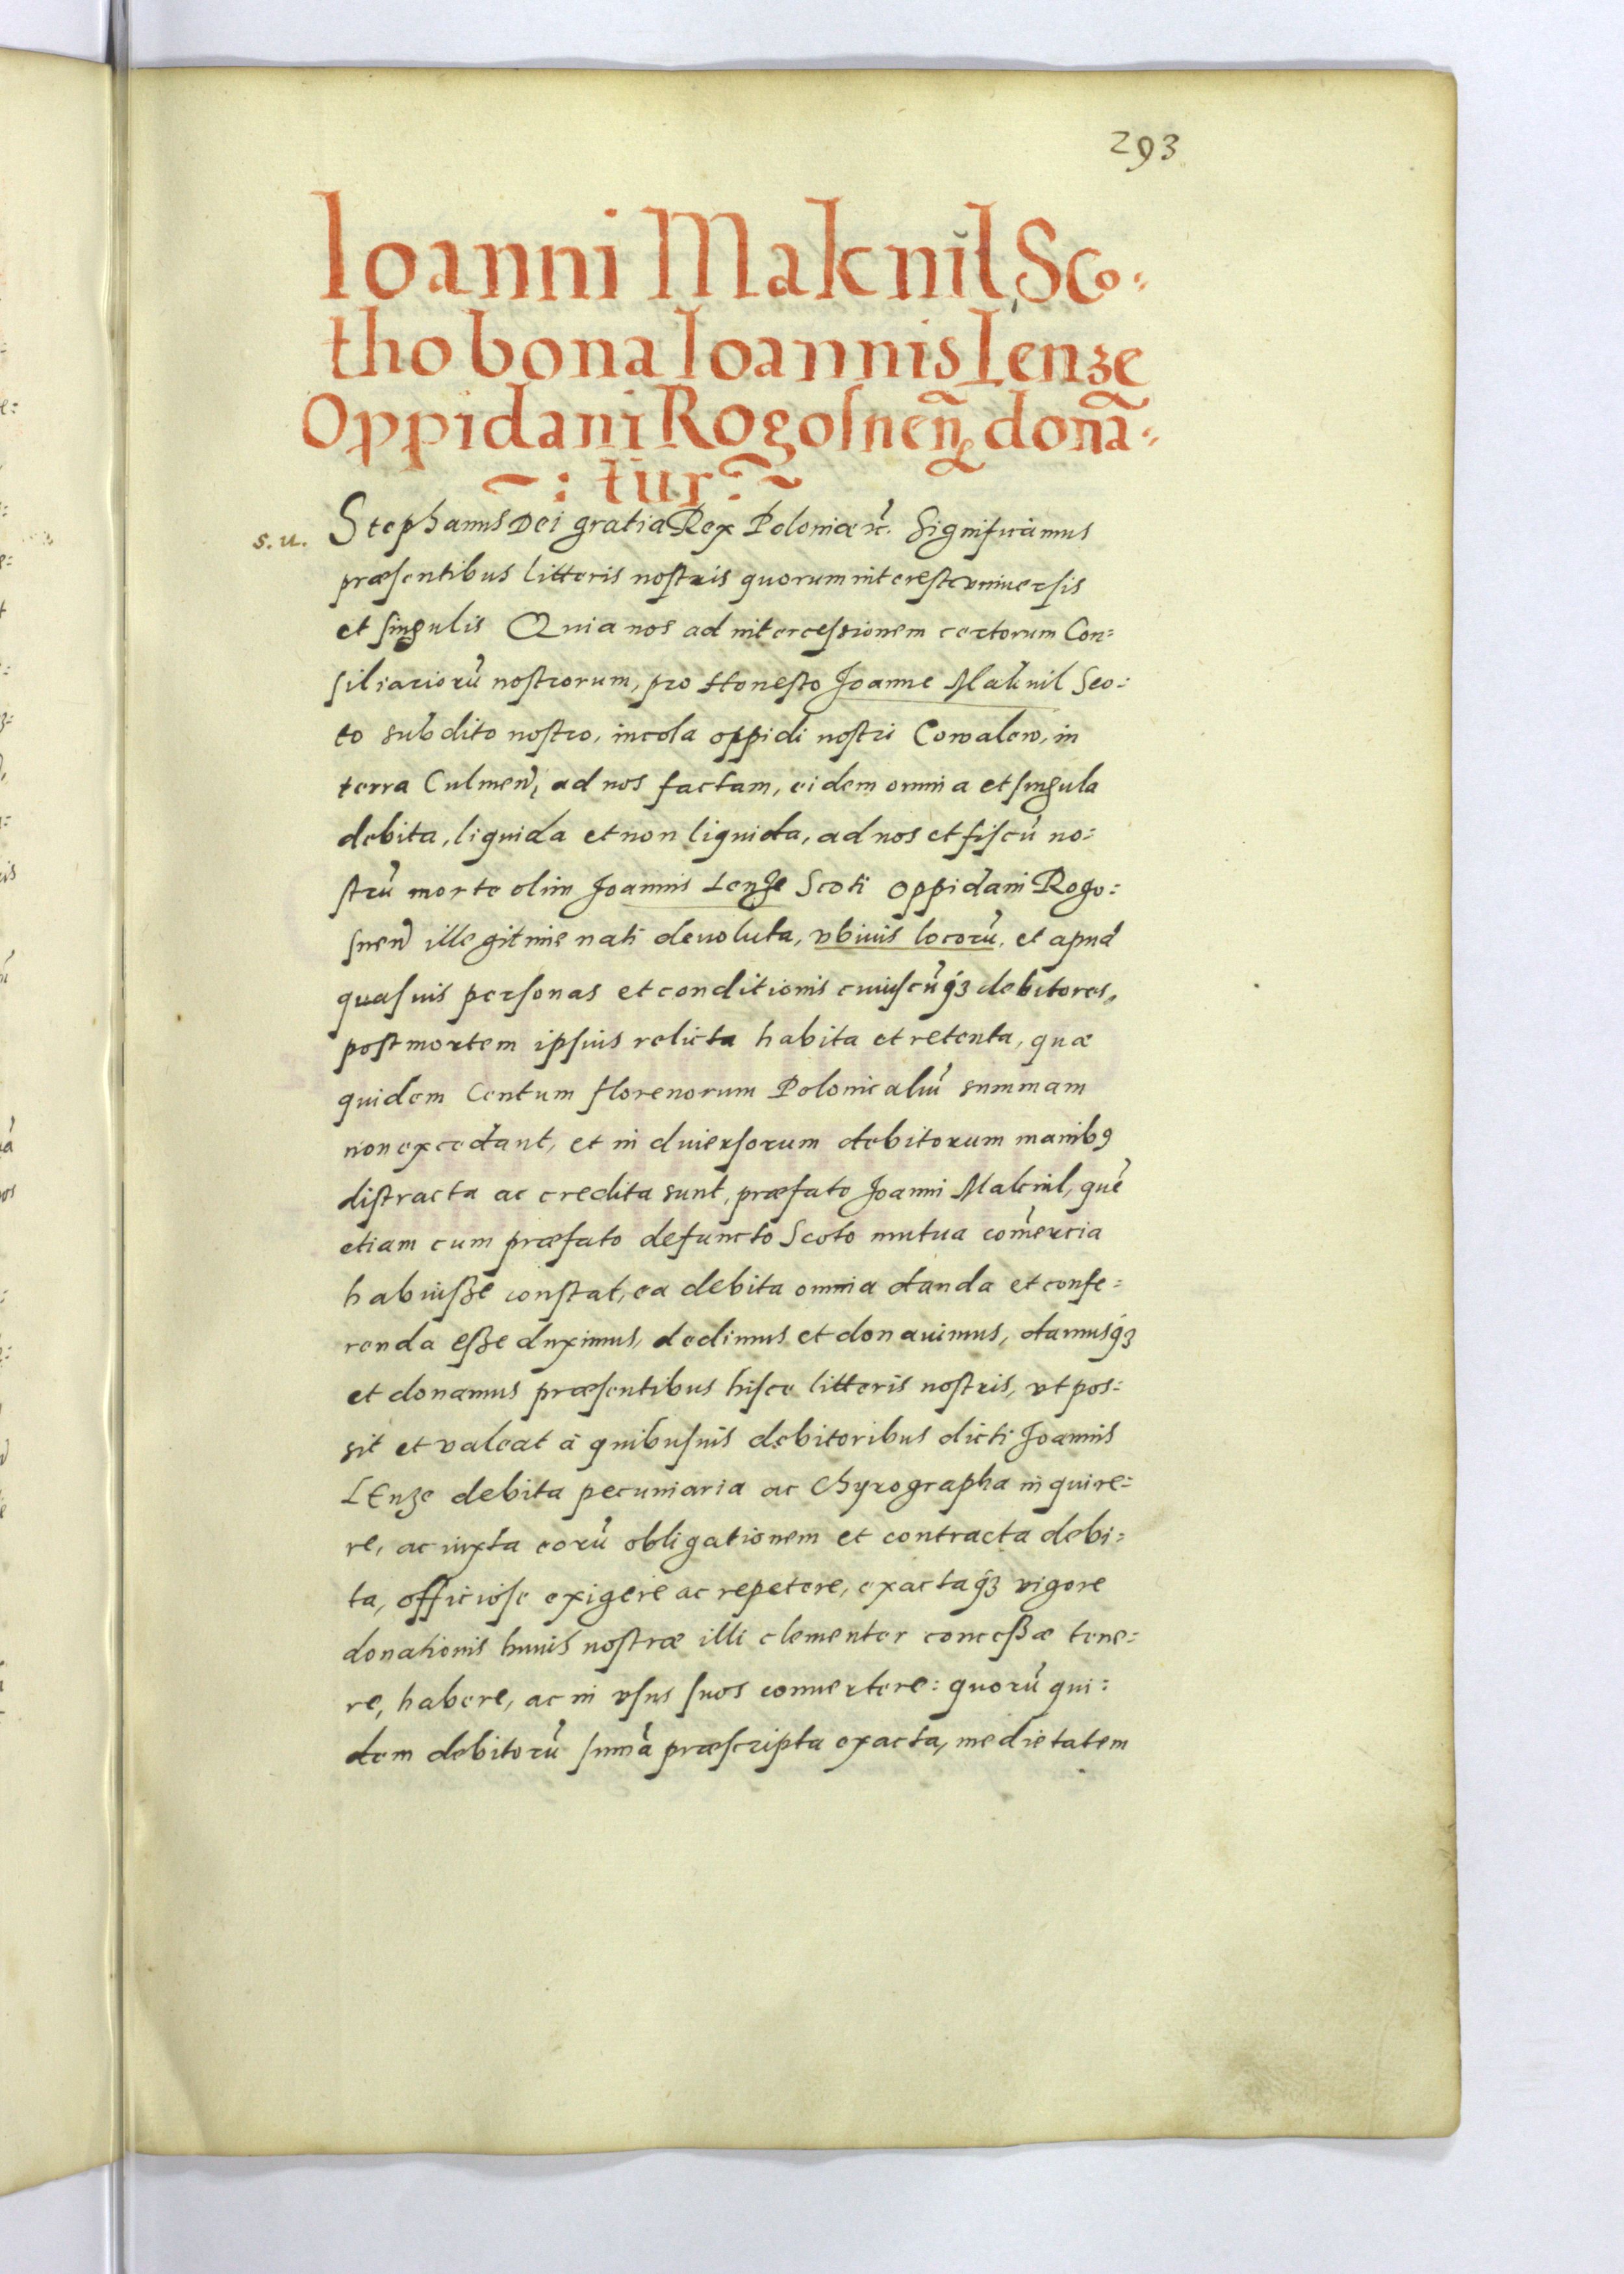 293
Ioanni Maknil Sco⸗
tho bona Ioannis Lenze
Oppidani Rogosnen̄ dona⸗
tur
s. u.
Stephanus Dei gratia Rex Poloniæ ꝛc̃. Significamus
præsentibus litteris nostris quorum interest vniuersis
et singulis Quia nos ad intercessionem certorum Con⸗
siliariorũ nostrorum, pro Honesto Joanne Maknil Sco⸗
to subdito nostro, incola oppidi nostri Cowalew, in
terra Culmen̄, ad nos factam, eidem omnia et singula
debita, liquida et non liquida, ad nos et fiscũ no⸗
strũ morte olim Joannis Lenze Scoti oppidani Rogo⸗
snen̄ illegitime nati deuoluta, vbiuis locorũ, et apud
quasuis personas et conditionis cuiuscũqꝫ debitores,
post mortem ipsius relicta habita et retenta, quæ
quidem Centum florenorum Polonicaliũ summam
non excedant, et in diuersorum debitorum manibꝰ
distracta ac credita sunt, præfato Joanni Maknil, quẽ
etiam cum præfato defuncto Scoto mutua com̃ercia
habuisse constat, ea debita omnia danda et confe⸗
renda esse duximus, dedimus et donauimus, damusqꝫ
et donamus præsentibus hisce litteris nostris, vt pos⸗
sit et valeat à quibusuis debitoribus dicti Joannis
LEnze debita pecuniaria ac Chyrographa inquire⸗
re, ac iuxta eorũ obligationem et contracta debi⸗
ta, officiose exigere ac repetere, exactaqꝫ vigore
donationis huius nostræ illi clementer concessæ tene⸗
re, habere, ac in vsus suos conuertere: quorũ qui⸗
dem debitorũ sum̃a præscripta exacta, medietatem